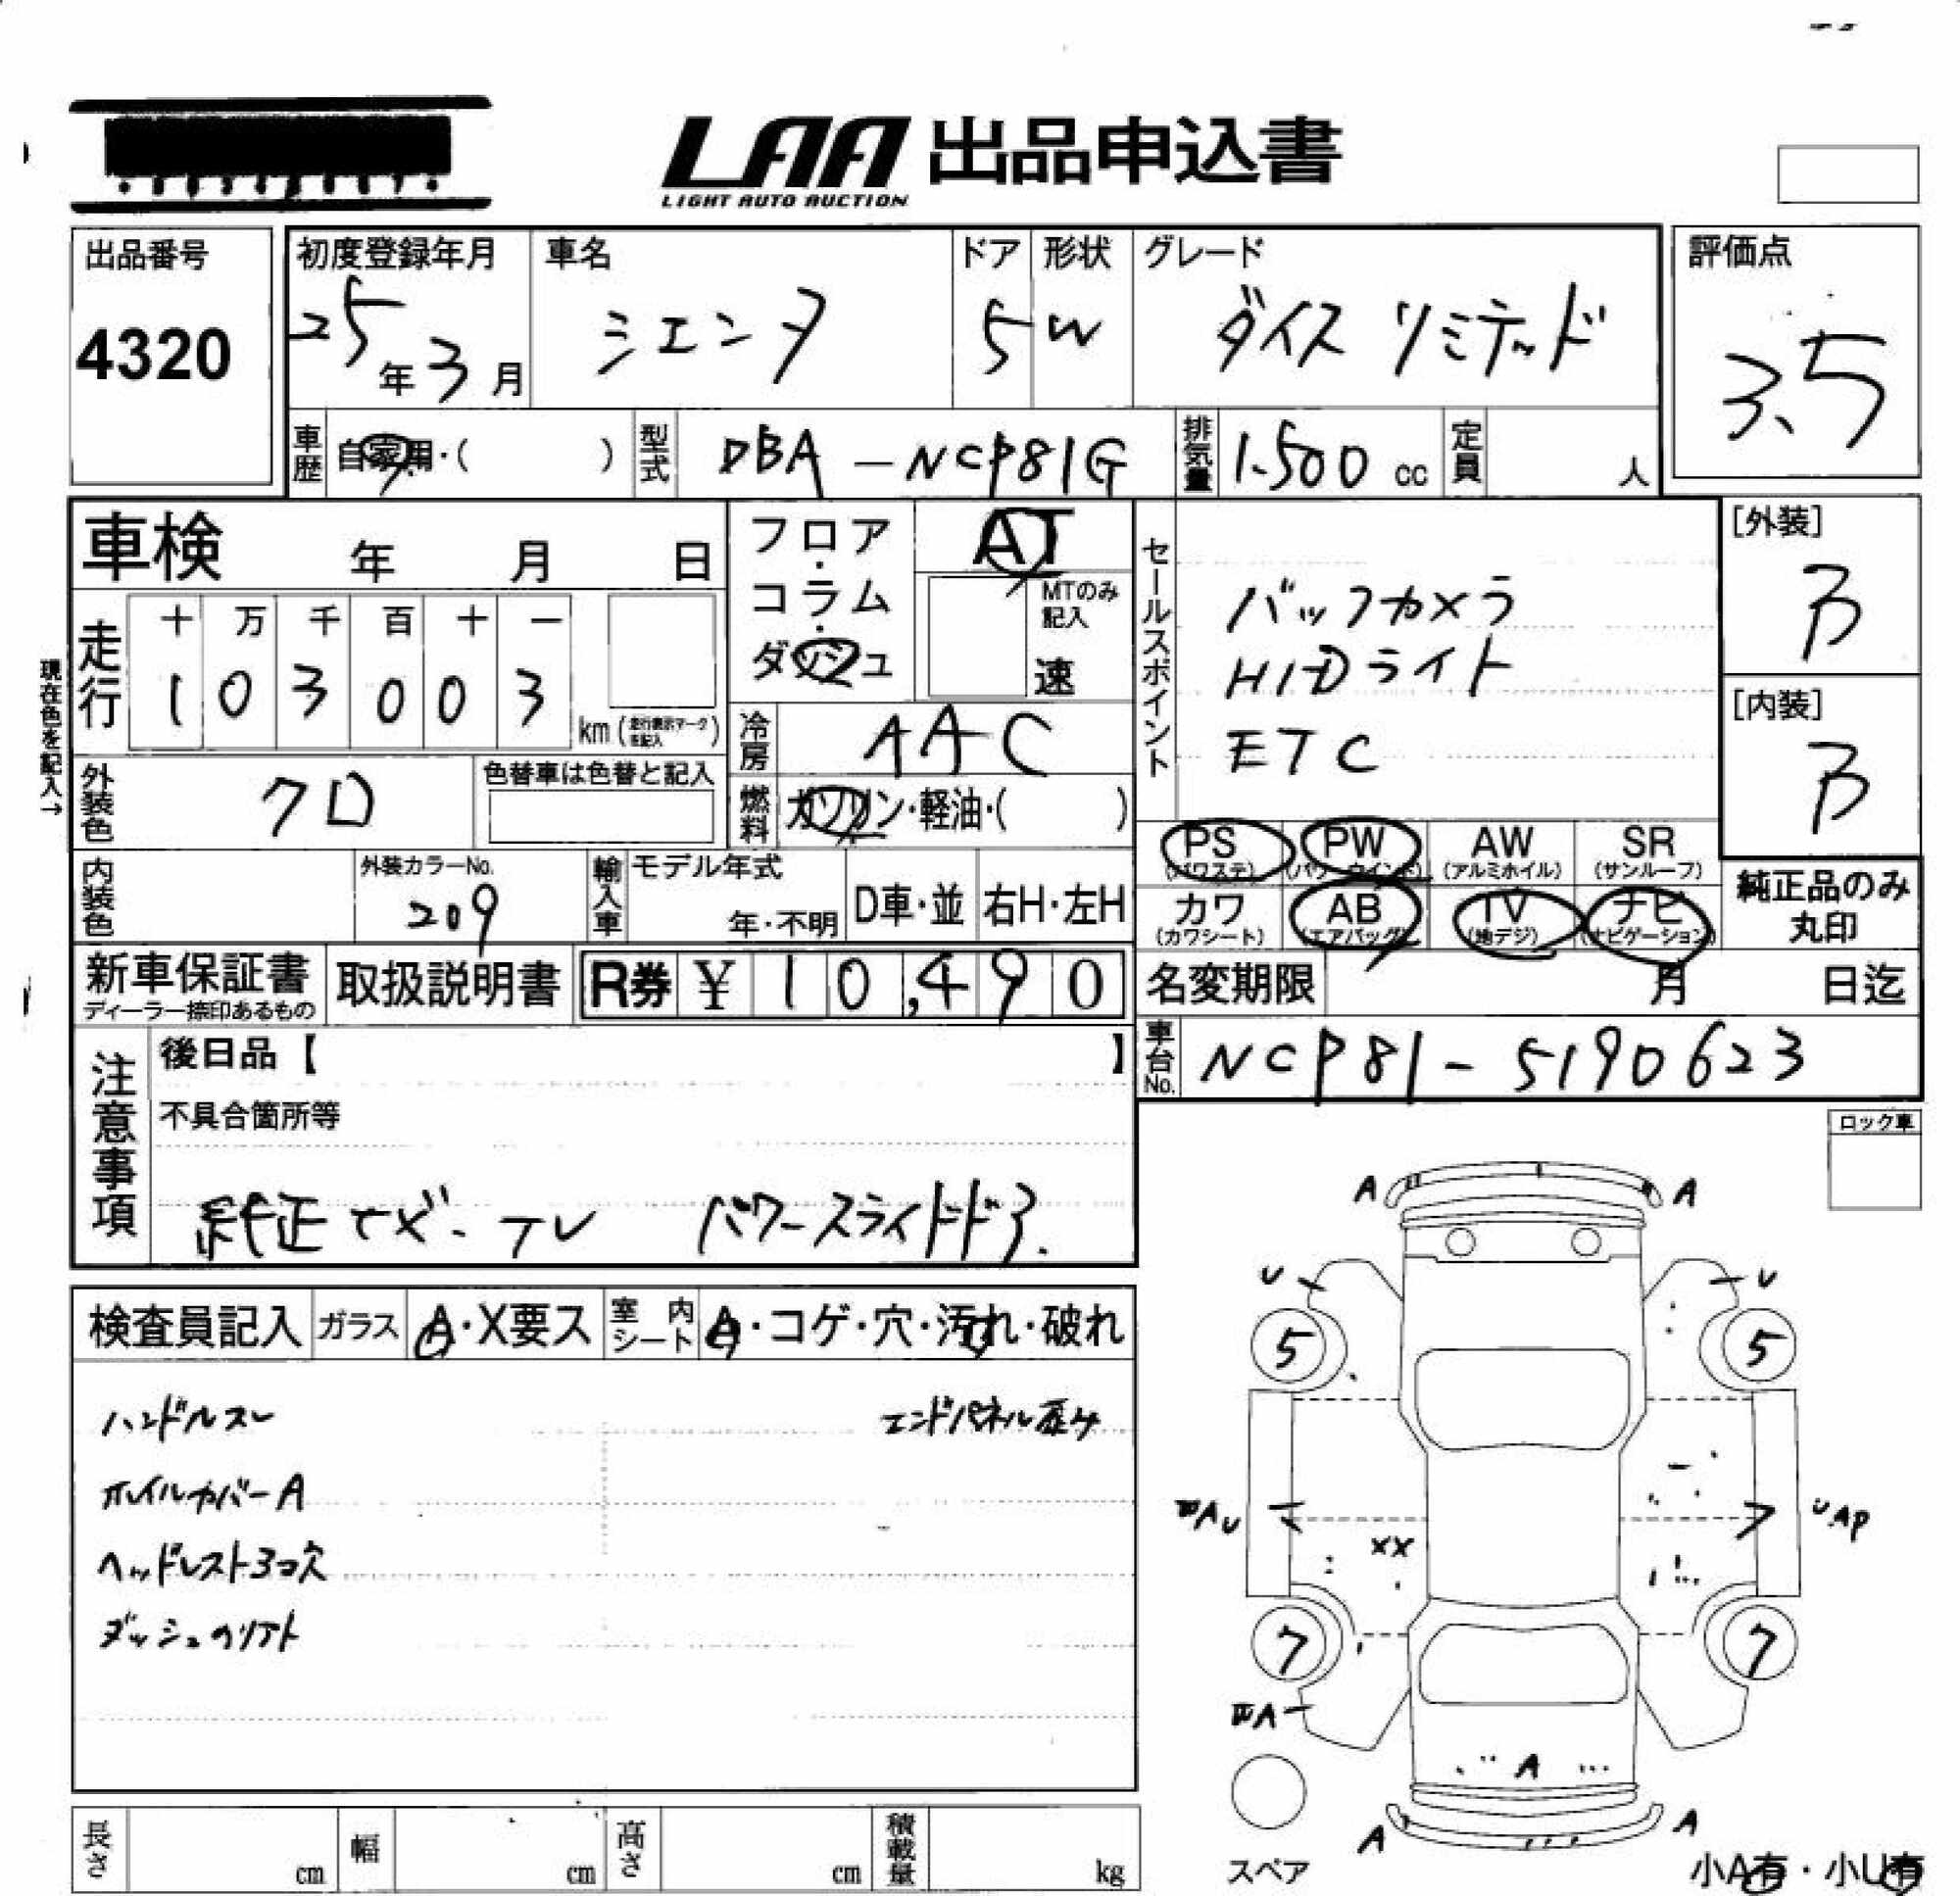 LAA 出品申込書
LIGHT AUTO AUCTION
出品番号
4320
初度登録年月
25年3月
車名
シエンタ
ドア
5
形状
W
グレード
ダイス リミテッド
評価点
3.5
車歴
自家用・( )
型式
DBA-NCP81G
排気量
1.500 cc
定員
人
車検 年 月 日
フロア・コラム・ダッシュ
AT
MTのみ記入
速
セールスポイント
バックカメラ
HIDライト
ETC
[外装]
B
[内装]
B
現在色を記入→
走行
十 万 千 百 十 一
1 0 3 0 0 3
km (走行表示マークを記入)
冷房
AAC
燃料
ガソリン・軽油・( )
外装色
クロ
色替車は色替と記入
内装色
外装カラーNo.
209
輸入車
モデル年式
年・不明
D車・並
右H・左H
PS (パワステ)
PW (パワーウインド)
AW (アルミホイル)
SR (サンルーフ)
カワ (カワシート)
AB (エアバッグ)
TV (地デジ)
ナビ (ナビゲーション)
純正品のみ丸印
新車保証書
ディーラー捺印あるもの
取扱説明書
R券 ¥ 10,490
名変期限 月 日迄
車台No.
NCP81-5190623
注意事項
後日品【 】
不具合箇所等
純正ナビ・TV パワースライドドア.
ロック車
検査員記入
ガラス
A・X要ス
室内シート
A・コゲ・穴・汚れ・破れ
ハンドルスレ
エンドパネル歪み
ホイルカバーA
ヘッドレスト3コ欠
ダッシュのリアト
A A
U U
5 5
XX
UAP
7 7
A
A A
スペア
小A有・小U有
長さ cm
幅 cm
高さ cm
積載量 kg